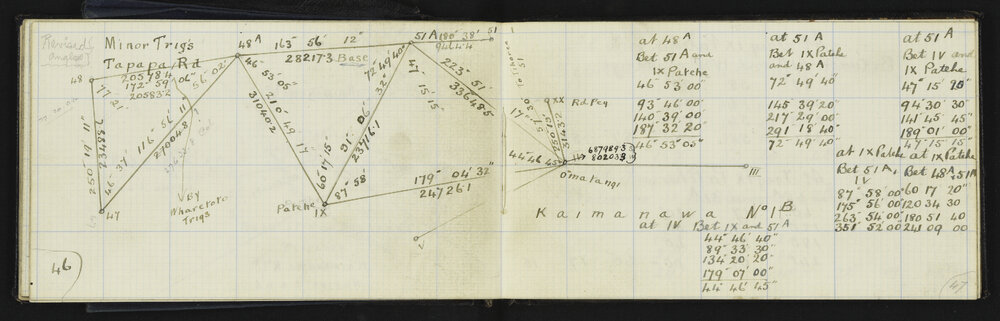 Revised
Angles
Minor Trigs
Tapapa Rd
48
205484
172° 59' 06"
205832
48 A
163° 56' 12"
282173 Base
51 A
180° 38'
9464.4
51
77° 21'
56' 02"
46° 53' 05"
210° 49' 17"
310402
250° 19' 11"
234886
46° 37'
116° 56' 11"
270048
47
V BY
Wharetoto
Trigs
72° 49' 40"
47° 15' 15"
91° 06' 32"
237161
60° 17' 15"
87° 58'
Patche
IX
179° 04' 32"
247261
223° 51'
336485
44° 46' 45"
XX Rd Peg
687989.3
80203.9
Omatangi
III
Kaimanawa No 1 B
46
at 48 A
Bet 51 A and
IX Patche
46° 53' 00"
93° 46' 00"
140° 39' 00"
187° 32' 20"
46° 53' 05"
at 51 A
Bet IX Patche
and 48 A
72° 49' 40"
145 39' 20"
217° 29' 00"
291 18' 40"
72° 49' 40
at 51 A
Bet IV and
IX Patche
47° 15' 20"
94° 30' 30"
141° 45' 45"
189° 01' 00"
47° 15' 15"
at IX Patche
Bet 51 A,
IV
87° 58' 00"
175° 56' 00"
263° 54' 00"
351° 52' 00"
at IX Patche
Bet 48 A & 51 A
60 17 20"
120 34 30
180 51 40
241 09 00
at IV Bet IX and 51 A
44° 46' 40"
89° 33' 30"
134° 20' 20"
179° 07' 00"
44° 46' 45"
47